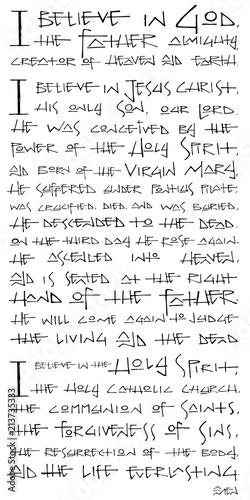 I BELIEVE IN GOD,
THE FATHER ALMIGHTY,
CREATOR OF HEAVEN AND EARTH.
I BELIEVE IN JESUS CHRIST,
HIS ONLY SON, OUR LORD.
HE WAS CONCEIVED BY THE
POWER OF THE HOLY SPIRIT,
AND BORN OF THE VIRGIN MARY.
HE SUFFERED UNDER PONTIUS PILATE,
WAS CRUCIFIED, DIED, AND WAS BURIED.
HE DESCENDED TO THE DEAD.
ON THE THIRD DAY HE ROSE AGAIN.
HE ASCENDED INTO HEAVEN,
AND IS SEATED AT THE RIGHT
HAND OF THE FATHER.
HE WILL COME AGAIN TO JUDGE
THE LIVING AND THE DEAD
I BELIEVE IN THE HOLY SPIRIT,
THE HOLY CATHOLIC CHURCH,
THE COMMUNION OF SAINTS,
THE FORGIVENESS OF SINS,
THE RESURRECTION OF THE BODY,
AND THE LIFE EVERLASTING.
AMEN